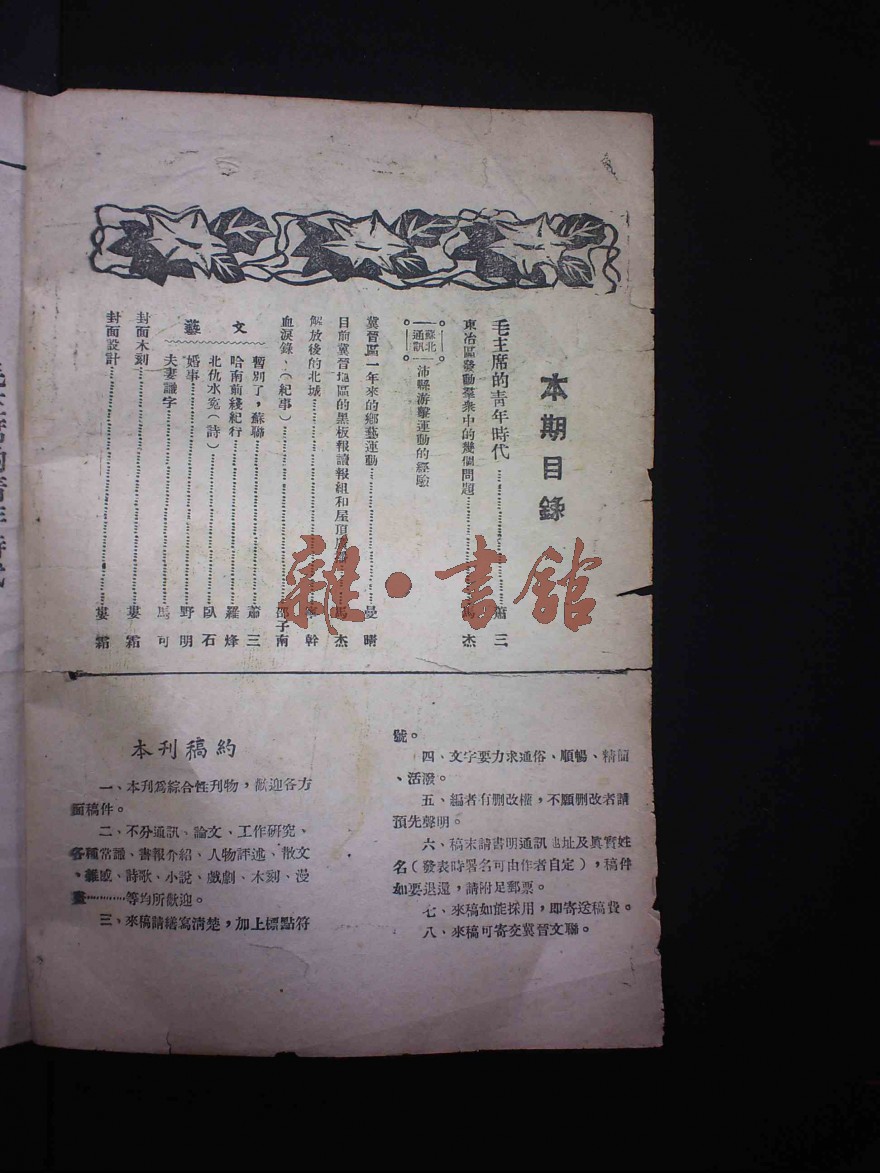 本期目錄
毛主席的青年時代……蕭三
東冶區發動羣衆中的幾個問題……馬杰
蘇北通訊 沛縣游擊運動的經驗
冀晉區一年來的鄉藝運動……曼晴
目前冀晉地區的黑板報讀報組和屋頂廣播……馬杰
解放後的北城……幹
血淚錄、(紀事)……邵子南
文藝
暫別了,蘇聯……蕭三
哈南前綫紀行……羅烽
北仇水寃(詩)……臥石
婚事……野明
夫妻識字……馬可
封面木刻……婁霜
封面設計……婁霜
雜·書館
本刊稿約
一、本刊爲綜合性刊物,歡迎各方
面稿件。
二、不分通訊、論文、工作研究、
各種常識、書報介紹、人物評述、散文
、雜感、詩歌、小說、戲劇、木刻、漫
畫…………等均所歡迎。
三、來稿請繕寫清楚,加上標點符
號。
四、文字要力求通俗、順暢、精簡
、活潑。
五、編者有删改權,不願删改者請
預先聲明。
六、稿末請書明通訊地址及眞實姓
名(發表時署名可由作者自定),稿件
如要退還,請附足郵票。
七、來稿如能採用,即寄送稿費。
八、來稿可寄交冀晉文聯。
毛主席的青年時代